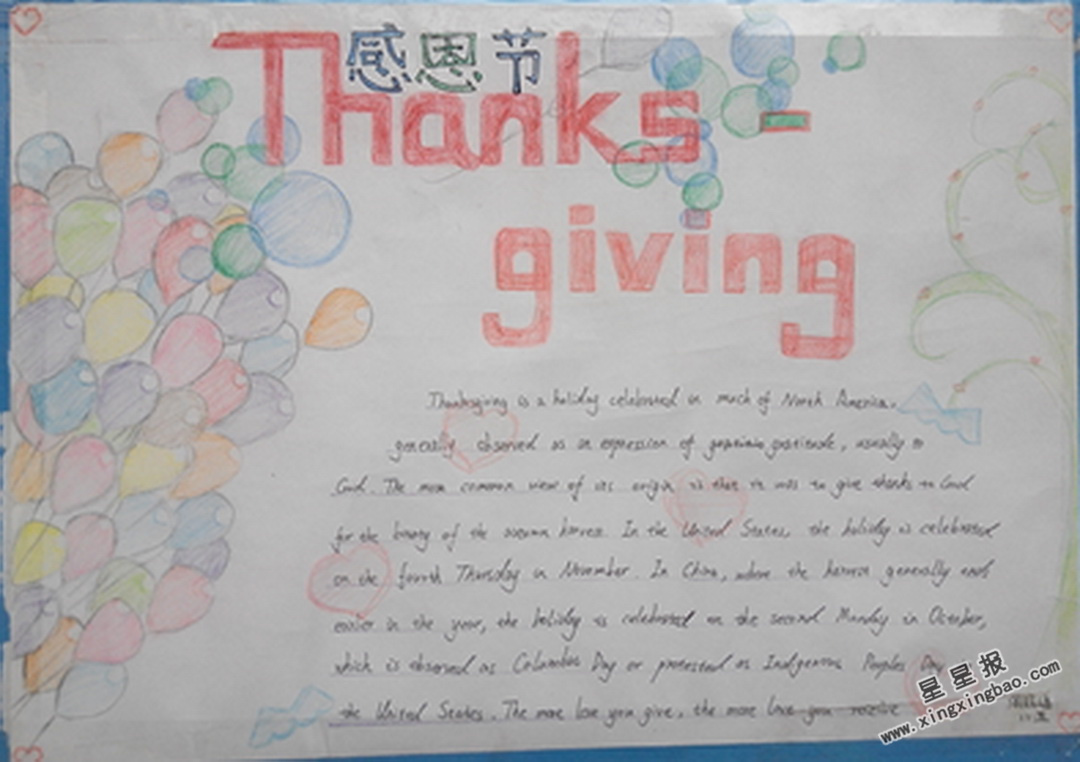 感恩节
Thanks-
giving
Thanksgiving is a holiday celebrated in much of North America,
generally observed as an expression of gratitude, usually to
God. The most common view of its origin is that it was to give thanks to God
for the bounty of the autumn harvest. In the United States, the holiday is celebrated
on the fourth Thursday in November. In China, where the harvest generally ends
earlier in the year, the holiday is celebrated on the second Monday in October,
which is observed as Columbus Day or protested as Indigenous Peoples Day
the United States. The more love you give, the more love you receive
星星报
www.xingxingbao.com